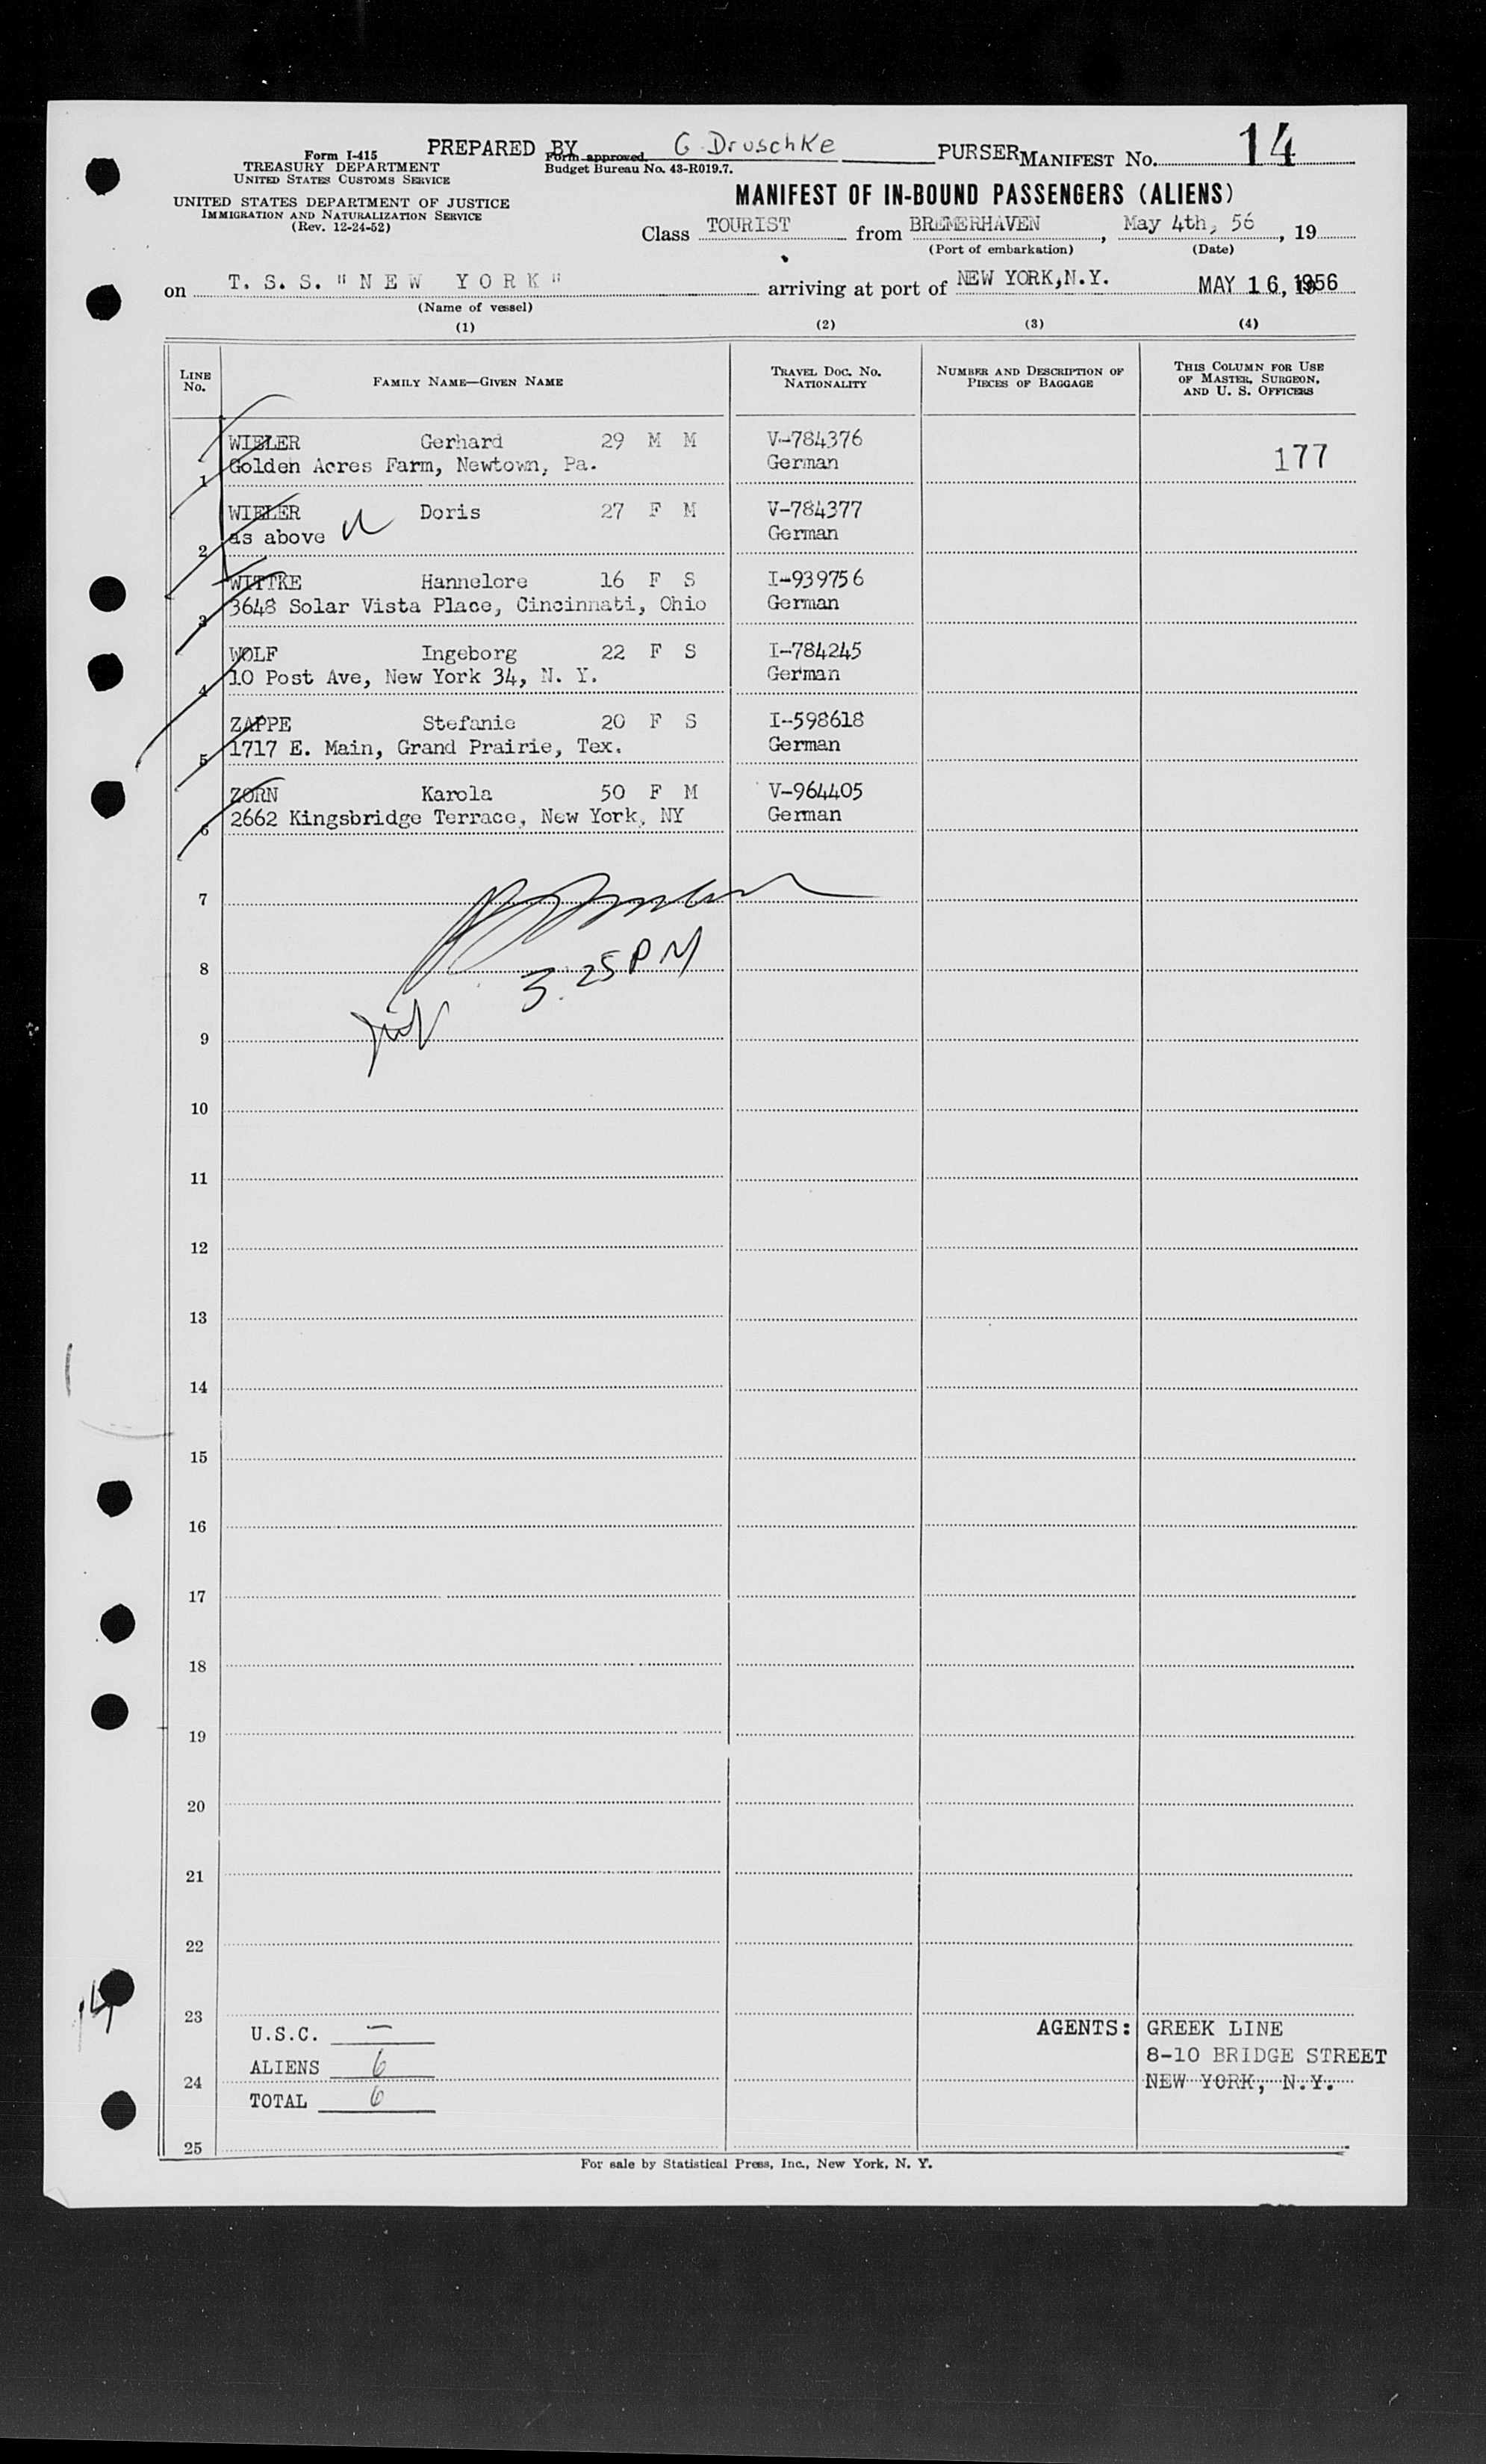 Form I-415
TREASURY DEPARTMENT
UNITED STATES CUSTOMS SERVICE
UNITED STATES DEPARTMENT OF JUSTICE
IMMIGRATION AND NATURALIZATION SERVICE
(Rev. 12-24-52)
PREPARED BY G. Druschke PURSER
Form approved
Budget Bureau No. 43-R019.7.
MANIFEST NO. 14
MANIFEST OF IN-BOUND PASSENGERS (ALIENS)
Class TOURIST from BREMERHAVEN, May 4th, 56, 19
(Port of embarkation) (Date)
on T. S. S. "NEW YORK" arriving at port of NEW YORK, N.Y. MAY 16, 1956
(Name of vessel)
(1) (2) (3) (4)
LINE NO. FAMILY NAME—GIVEN NAME TRAVEL DOC. NO. NATIONALITY NUMBER AND DESCRIPTION OF PIECES OF BAGGAGE THIS COLUMN FOR USE OF MASTER, SURGEON, AND U. S. OFFICERS
WIELER Gerhard 29 M M V-784376
1 Golden Acres Farm, Newtown, Pa. German 177
WIELER Doris 27 F M V-784377
2 as above German
WITTKE Hannelore 16 F S I-939756
3 3648 Solar Vista Place, Cincinnati, Ohio German
WOLF Ingeborg 22 F S I-784245
4 10 Post Ave, New York 34, N. Y. German
ZAPPE Stefanie 20 F S I-598618
5 1717 E. Main, Grand Prairie, Tex. German
ZORN Karola 50 F M V-964405
6 2662 Kingsbridge Terrace, New York, NY German
7
8 3.25 PM
9
10
11
12
13
14
15
16
17
18
19
20
21
22
23
U.S.C. — AGENTS: GREEK LINE
ALIENS 6 8-10 BRIDGE STREET
24 NEW YORK, N.Y.
TOTAL 6
25
14
For sale by Statistical Press, Inc., New York, N. Y.